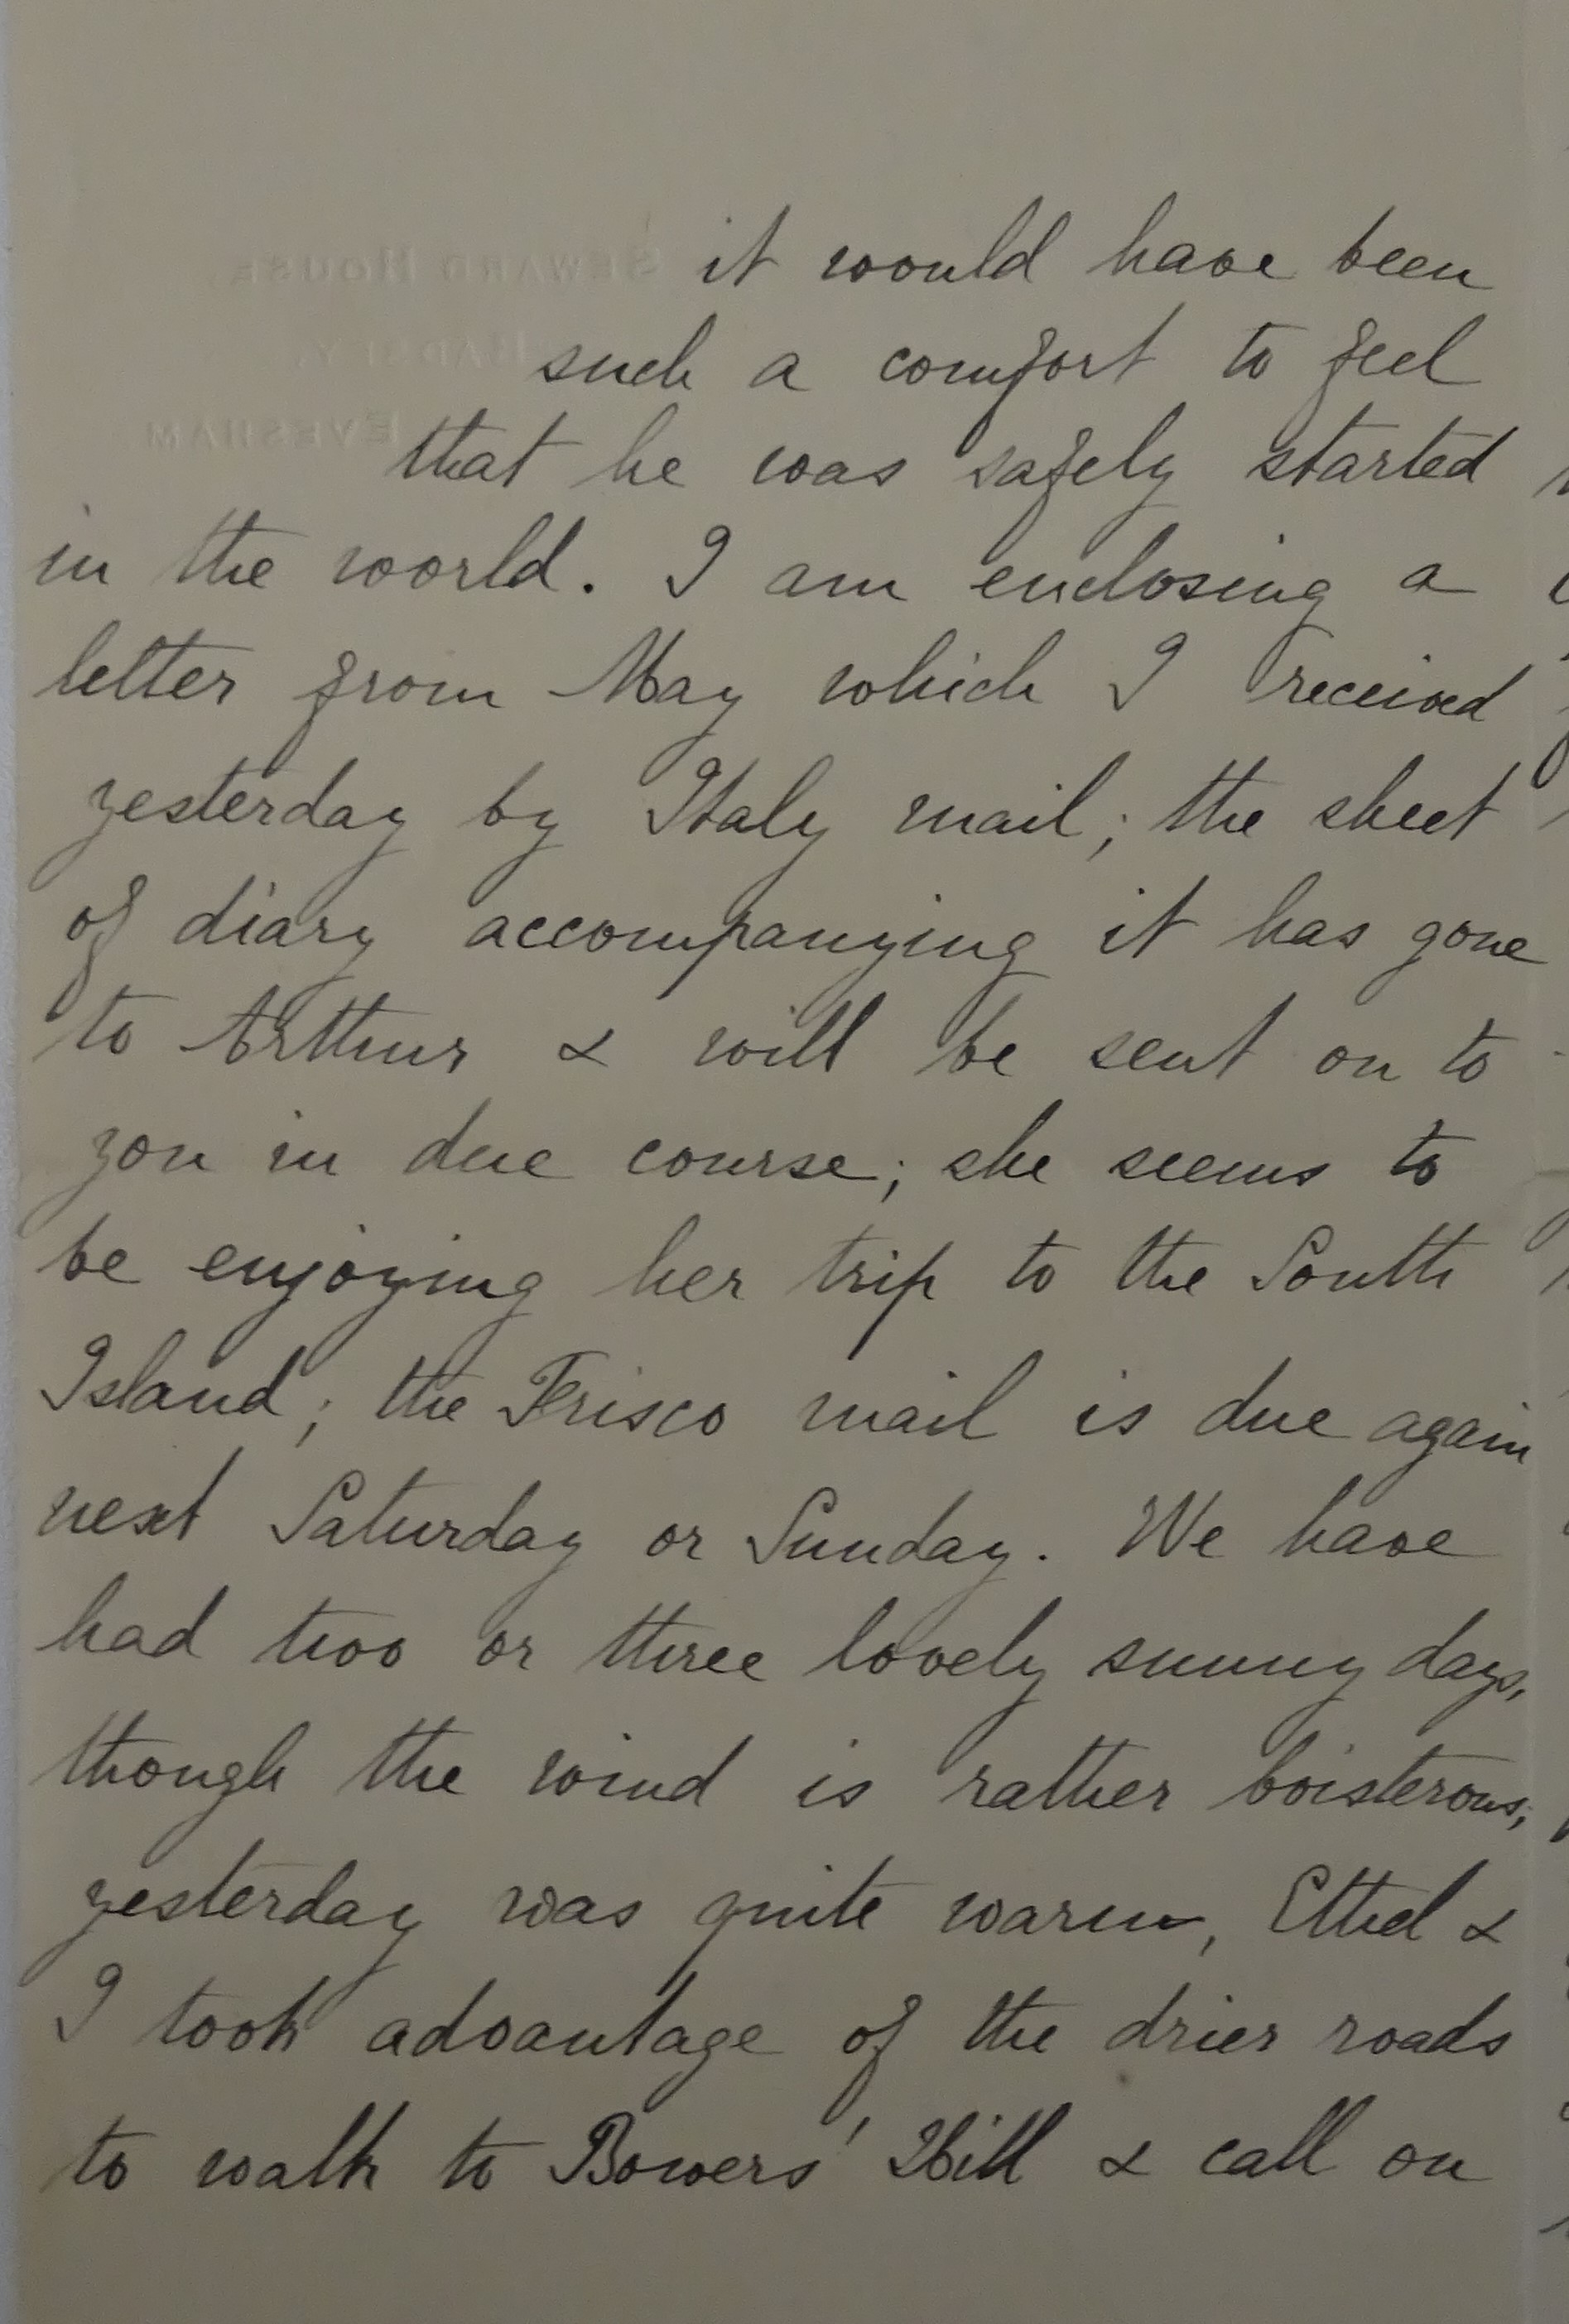 SEWARD HOUSE
BADSEY
EVESHAM
it would have been
such a comfort to feel
that he was safely started
in the world. I am enclosing a
letter from May which I received
yesterday by Italy mail; the sheet
of diary accompanying it has gone
to Arthur & will be sent on to
you in due course; she seems to
be enjoying her trip to the South
Island; the Frisco mail is due again
next Saturday or Sunday. We have
had two or three lovely sunny days,
though the wind is rather boisterous;
yesterday was quite warm, Ethel &
I took advantage of the drier roads
to walk to Bowers' Hill & call on